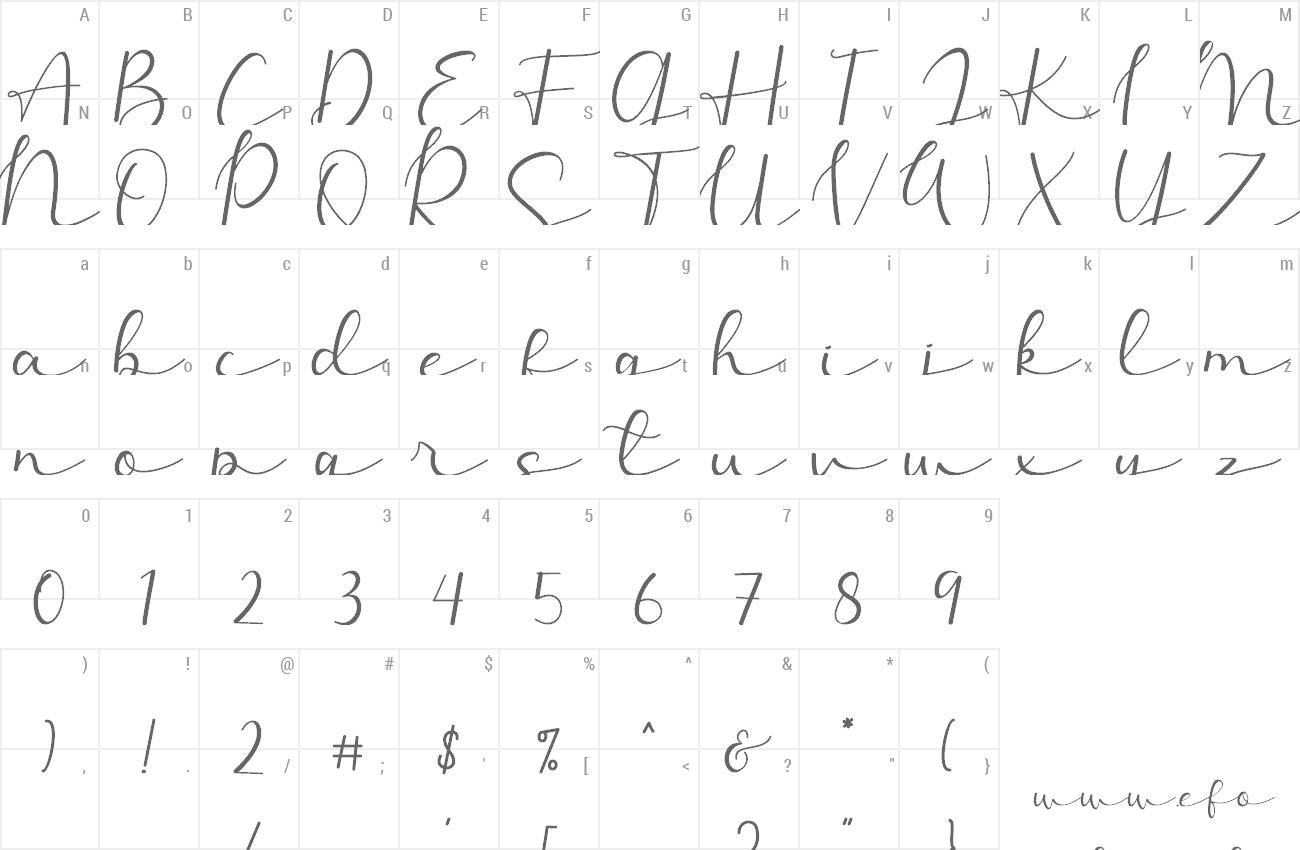 A B C D E F G H I J K L M
A B C D E F G H I J K L M
N O P Q R S T U V W X Y Z
N O P Q R S T U V W X Y Z
a b c d e f g h i j k l m
a b c d e f g h i j k l m
n o p q r s t u v w x y z
n o p q r s t u v w x y z
0 1 2 3 4 5 6 7 8 9
0 1 2 3 4 5 6 7 8 9
) ! @ # $ % ^ & * (
) ! 2 # $ % ^ & * (
, . / ; ' [ < ? " }
/ ' [ ? " }
www.efo